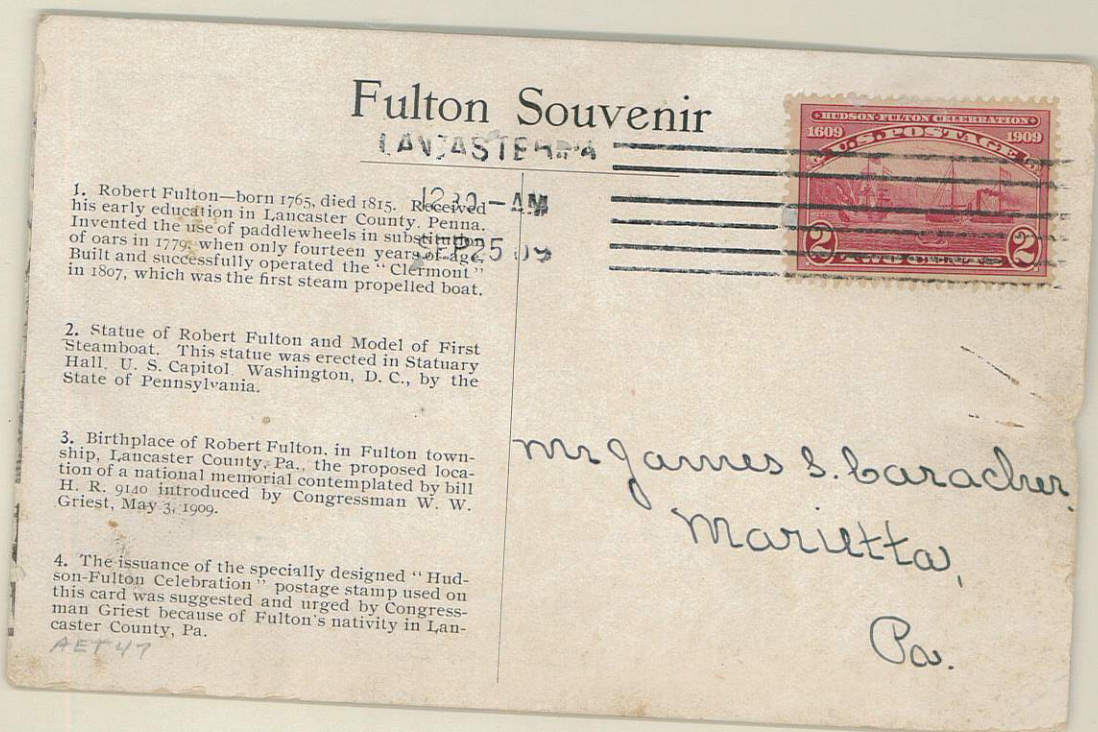 Fulton Souvenir
LANCASTER PA
12 30 - AM
SEP 25 09
HUDSON-FULTON CELEBRATION
1609 1909
U.S. POSTAGE
2 2
1. Robert Fulton—born 1765, died 1815. Received
his early education in Lancaster County, Penna.
Invented the use of paddlewheels in substitution
of oars in 1779, when only fourteen years of age.
Built and successfully operated the "Clermont"
in 1807, which was the first steam propelled boat.
2. Statue of Robert Fulton and Model of First
Steamboat. This statue was erected in Statuary
Hall, U. S. Capitol Washington, D. C., by the
State of Pennsylvania.
3. Birthplace of Robert Fulton, in Fulton town-
ship, Lancaster County, Pa., the proposed loca-
tion of a national memorial contemplated by bill
H. R. 9140 introduced by Congressman W. W.
Griest, May 3, 1909.
4. The issuance of the specially designed "Hud-
son-Fulton Celebration" postage stamp used on
this card was suggested and urged by Congress-
man Griest because of Fulton's nativity in Lan-
caster County, Pa.
AET 47
Mr James S. Caracher,
Marietta,
Pa.